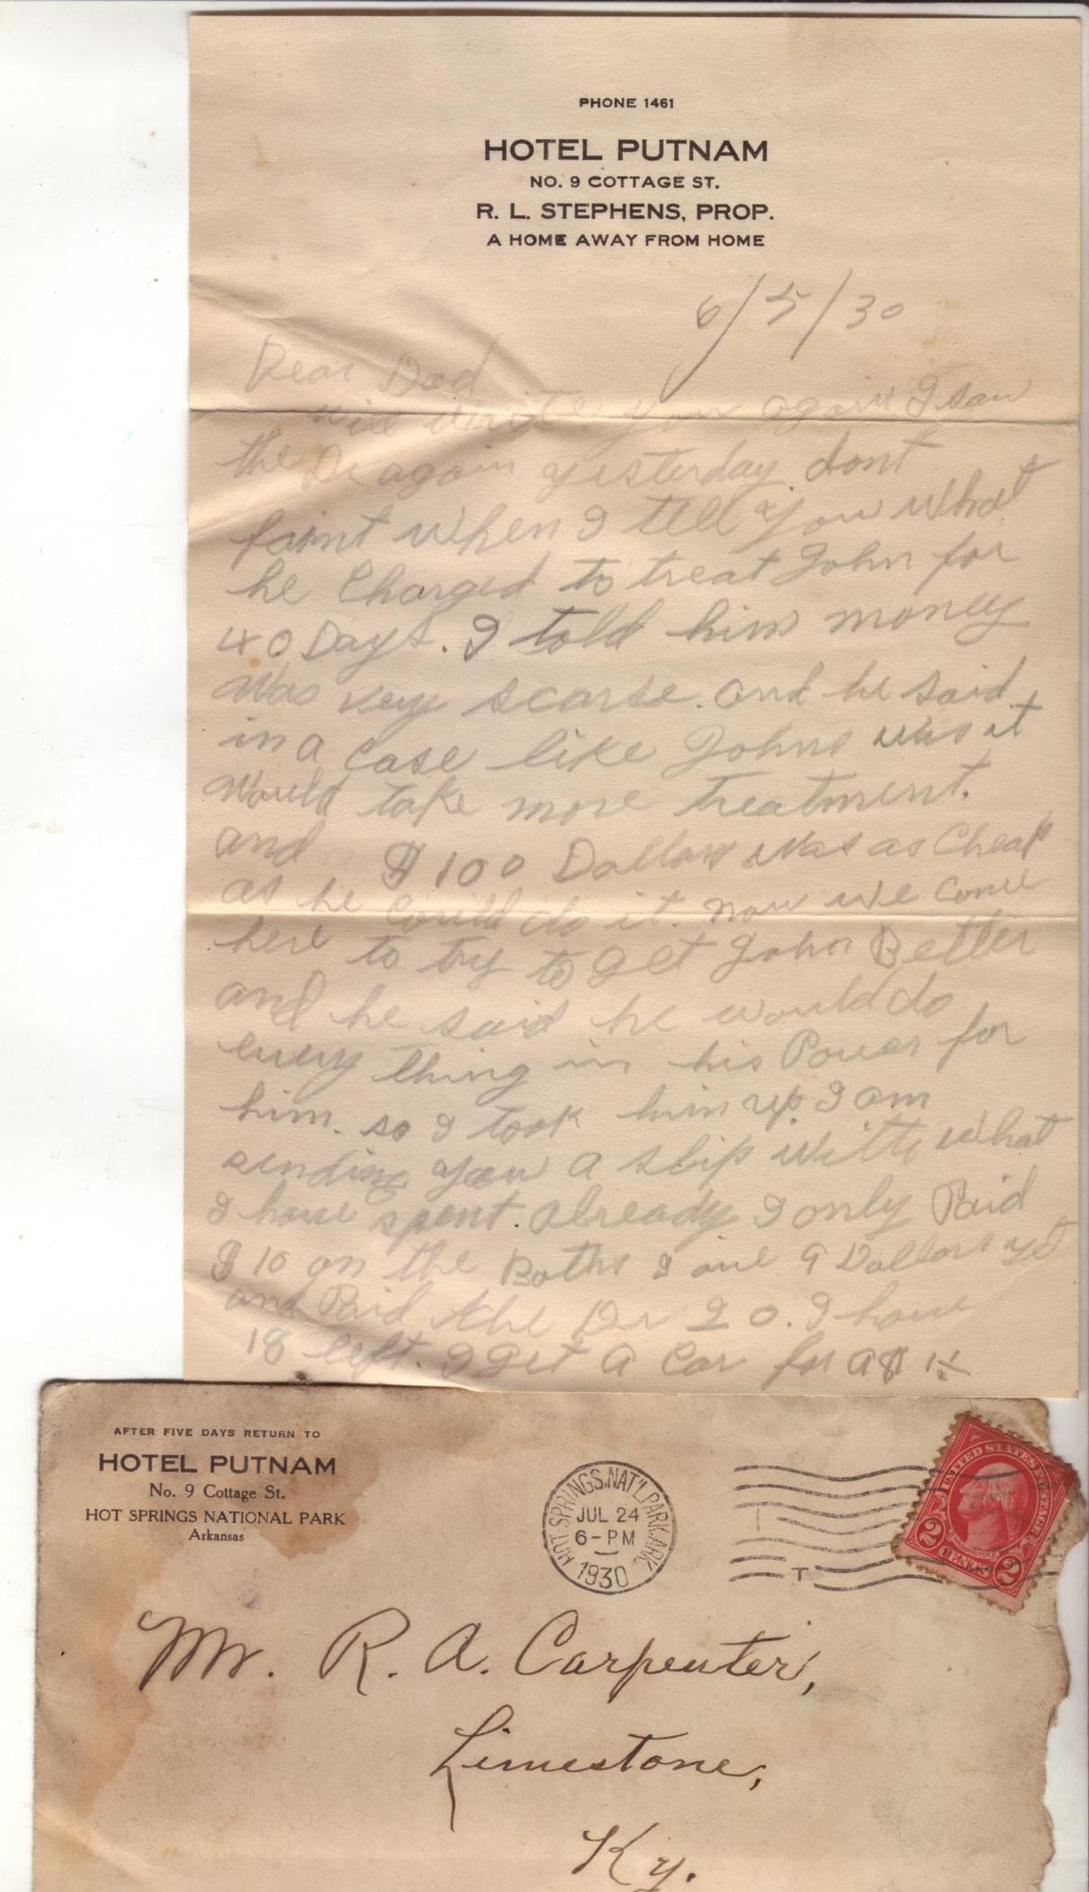 PHONE 1461
HOTEL PUTNAM
NO. 9 COTTAGE ST.
R. L. STEPHENS, PROP.
A HOME AWAY FROM HOME
6/5/30
Dear Dad
will write you again I saw
the Dr again yesterday dont
faint when I tell you what
he Charged to treat John for
40 Days. I told him money
was very scarse. and he said
in a case like Johns was it
would take more treatment.
and $100 Dollars was as Cheap
as he could do it. now we come
here to try to get John Better
and he said he would do
every thing in his Power for
him. so I took him up I am
sending you a slip with what
I have spent. already I only Paid
$10 on the Baths I owe 9 Dollars yet
and Paid the Dr 20. I have
18 left. I get a Car for a $
AFTER FIVE DAYS RETURN TO
HOTEL PUTNAM
No. 9 Cottage St.
HOT SPRINGS NATIONAL PARK
Arkansas
HOT SPRINGS NAT'L PARK, ARK.
JUL 24
6-PM
1930
T
UNITED STATES POSTAGE
2 CENTS 2
Mr. R. A. Carpenter,
Limestone,
Ky.